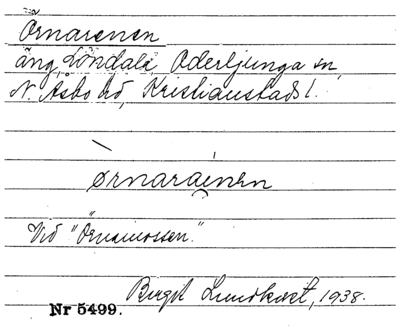 Örnarenen
äng, Londala, Oderljunga sn,
N. Åsbo hd, Kristianstads l.
ørnaraɩnen
Vid "Örnamossen."
Birgit Lundkvist, 1938.
Nr 5499.